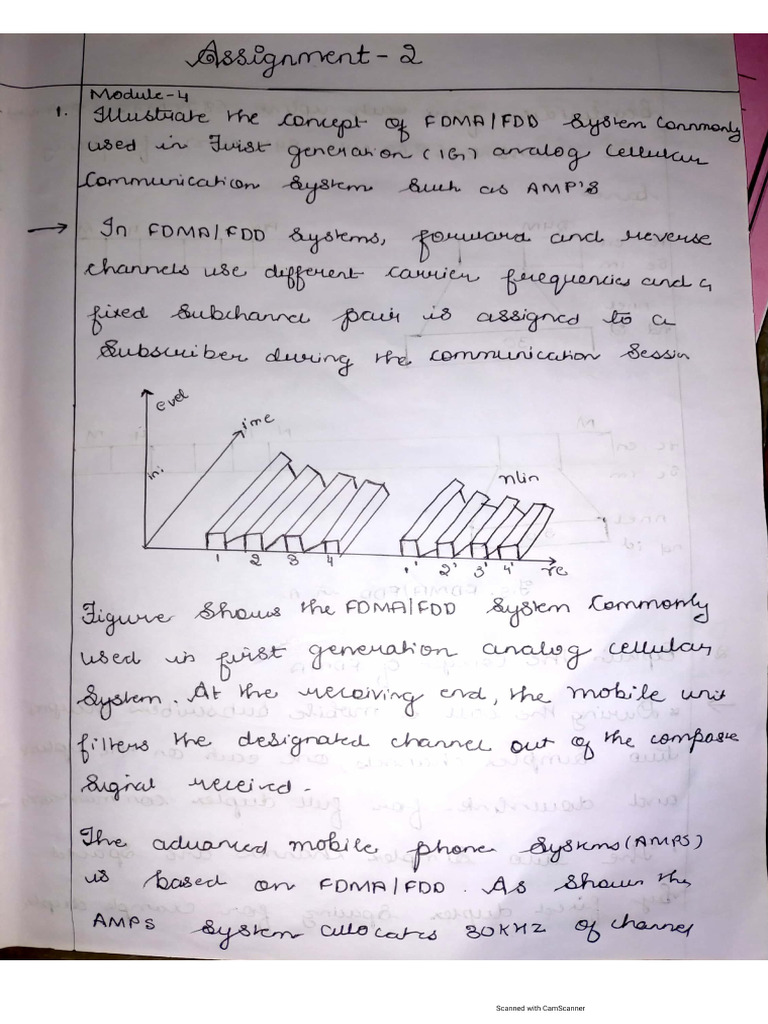 Assignment - 2
Module-4
1. Illustrate the concept of FDMA/FDD system commonly
used in First generation (1G) analog cellular
Communication system such as AMP'S
→ In FDMA/FDD systems, forward and reverse
channels use different carrier frequencies and a
fixed subchannel pair is assigned to a
subscriber during the communication sessin
evel
ime
in:
nlin
1 2 3 4 1' 2' 3' 4' re
Figure shows the FDMA/FDD system commonly
used in first generation analog cellular
system. At the receiving end, the mobile unit
filters the designated channel out of the composie
signal received.
The advanced mobile phone systems (AMPS)
is based on FDMA/FDD. As shown the
AMPS system allocates 30KHZ of channel
Scanned with CamScanner